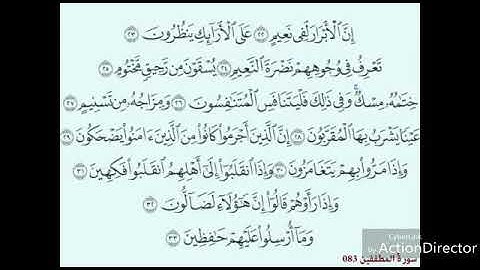 إِنَّ ٱلْأَبْرَارَ لَفِى نَعِيمٍ ٢٢ عَلَى ٱلْأَرَآئِكِ يَنظُرُونَ ٢٣
تَعْرِفُ فِى وُجُوهِهِمْ نَضْرَةَ ٱلنَّعِيمِ ٢٤ يُسْقَوْنَ مِن رَّحِيقٍ مَّخْتُومٍ ٢٥
خِتَٰمُهُۥ مِسْكٌ ۚ وَفِى ذَٰلِكَ فَلْيَتَنَافَسِ ٱلْمُتَنَٰفِسُونَ ٢٦ وَمِزَاجُهُۥ مِن تَسْنِيمٍ ٢٧
عَيْنًا يَشْرَبُ بِهَا ٱلْمُقَرَّبُونَ ٢٨ إِنَّ ٱلَّذِينَ أَجْرَمُوا۟ كَانُوا۟ مِنَ ٱلَّذِينَ ءَامَنُوا۟ يَضْحَكُونَ ٢٩
وَإِذَا مَرُّوا۟ بِهِمْ يَتَغَامَزُونَ ٣٠ وَإِذَا ٱنقَلَبُوٓا۟ إِلَىٰٓ أَهْلِهِمُ ٱنقَلَبُوا۟ فَكِهِينَ ٣١
وَإِذَا رَأَوْهُمْ قَالُوٓا۟ إِنَّ هَٰٓؤُلَآءِ لَضَآلُّونَ ٣٢
وَمَآ أُرْسِلُوا۟ عَلَيْهِمْ حَٰفِظِينَ ٣٣
CyberLink
ActionDirector
سورة المطففين 083